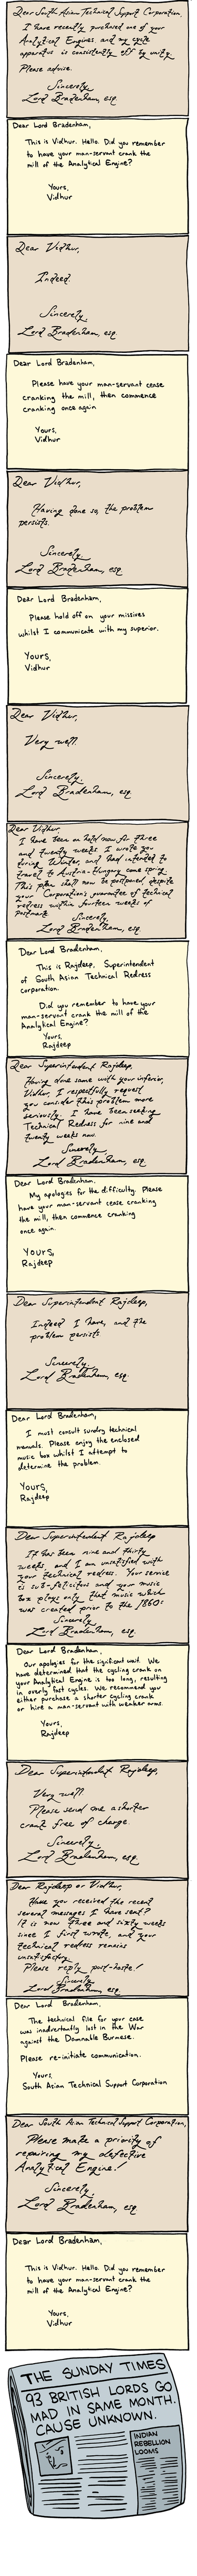 Dear South Asian Technical Support Corporation,
I have recently purchased one of your
Analytical Engines, and my cycle
apparatus is consistently off by unity.
Please advise.
Sincerely,
Lord Bradenham, esq.
Dear Lord Bradenham,
This is Vidhur. Hello. Did you remember
to have your man-servant crank the
mill of the Analytical Engine?
Yours,
Vidhur
Dear Vidhur,
Indeed.
Sincerely,
Lord Bradenham, esq.
Dear Lord Bradenham,
Please have your man-servant cease
cranking the mill, then commence
cranking once again
Yours,
Vidhur
Dear Vidhur,
Having done so, the problem
persists.
Sincerely
Lord Bradenham, esq
Dear Lord Bradenham,
Please hold off on your missives
whilst I communicate with my superior.
Yours,
Vidhur
Dear Vidhur,
Very well.
Sincerely,
Lord Bradenham, esq
Dear Vidhur,
I have been on hold now for three
and twenty weeks. I wrote you
during Winter, and had intended to
travel to Austria-Hungary come spring.
This plan shall now be postponed despite
your Corporation's guarantee of technical
redress within fourteen weeks of
postmark.
Sincerely,
Lord Bradenham, esq
Dear Lord Bradenham,
This is Rajdeep, Superintendent
of South Asian Technical Redress
corporation.
Did you remember to have your
man-servant crank the mill of the
Analytical Engine?
Yours,
Rajdeep
Dear Superintendent Rajdeep,
Having done same with your inferior,
Vidhur, I respectfully request
you consider this problem more
seriously. I have been seeking
Technical Redress for nine and
twenty weeks now.
Sincerely
Lord Bradenham, esq
Dear Lord Bradenham.
My apologies for the difficulty. Please
have your man-servant cease cranking
the mill, then commence cranking
once again.
Yours,
Rajdeep
Dear Superintendent Rajdeep,
Indeed I have, and the
problem persists
Sincerely,
Lord Bradenham, esq.
Dear Lord Bradenham,
I must consult sundry technical
manuals. Please enjoy the enclosed
music box whilst I attempt to
determine the problem.
Yours,
Rajdeep
Dear Superintendent Rajdeep
It has been nine and thirty
weeks, and I am unsatisfied with
your technical redress. Your service
is sub-felicitous and your music
box plays only that music which
was created prior to the 1860s
Sincerely
Lord Bradenham, esq.
Dear Lord Bradenham,
Our apologies for the significant wait. We
have determined that the cycling crank on
your Analytical Engine is too long, resulting
in overly fast cycles. We recommend you
either purchase a shorter cycling crank
or hire a man-servant with weaker arms.
Yours,
Rajdeep
Dear Superintendent Rajdeep,
Very well.
Please send me a shorter
crank free of charge.
Sincerely,
Lord Bradenham, esq
Dear Rajdeep or Vidhur,
Have you received the recent
several messages I have sent?
It is now three and sixty weeks
since I first wrote, and your
technical redress remains
unsatisfactory.
Please reply post-haste!
Sincerely
Lord Bradenham, esq
Dear Lord Bradenham.
The technical file for your case
was inadvertantly lost in the War
against the Damnable Burmese.
Please re-initiate communication.
Yours,
South Asian Technical Support Corporation
Dear South Asian Technical Support Corporation,
Please make a priority of
repairing my defective
Analytical Engine!
Sincerely,
Lord Bradenham, esq
Dear Lord Bradenham,
This is Vidhur. Hello. Did you remember
to have your man-servant crank the
mill of the Analytical Engine?
Yours,
Vidhur
THE SUNDAY TIMES
93 BRITISH LORDS GO
MAD IN SAME MONTH.
CAUSE UNKNOWN.
INDIAN
REBELLION
LOOMS